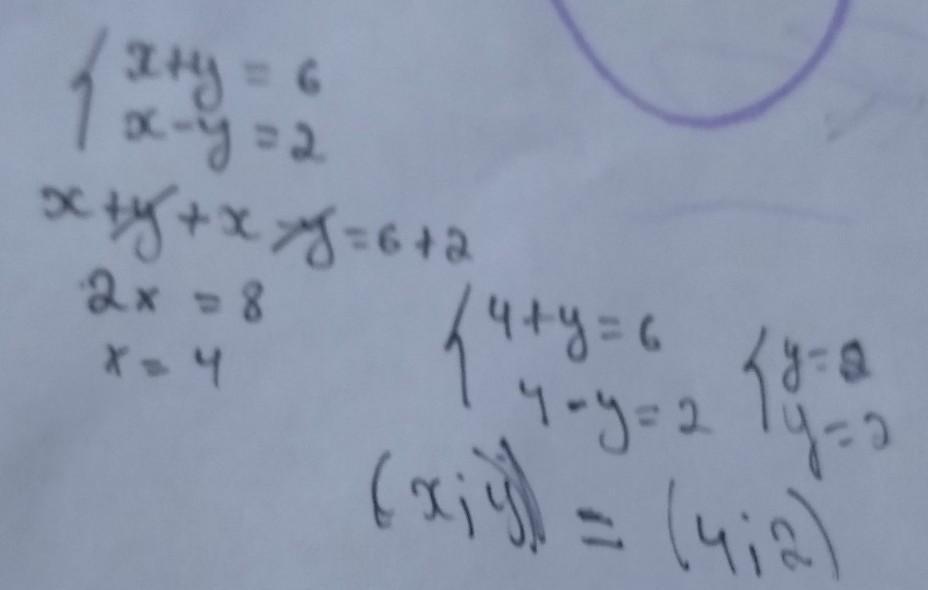 { x+y = 6
x-y = 2
x+y+x-y=6+2
2x = 8
x = 4
{ 4+y=6
4-y=2
{ y=2
y=2
(x;y) = (4;2)